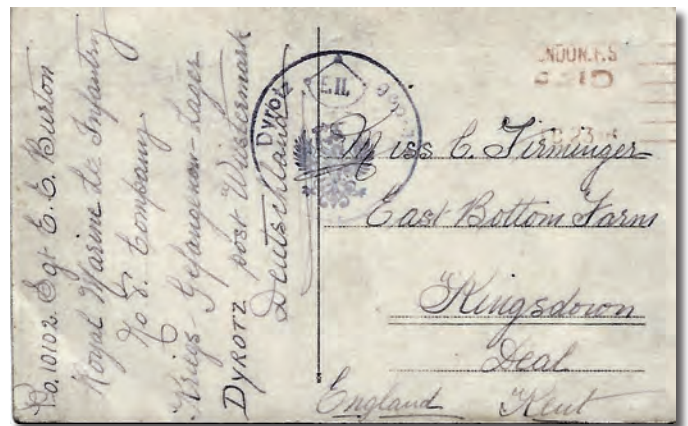 Po. 10102. Sgt E. E. Burton
Royal Marine Lt. Infantry
No 8. Company
Kriegs-Gefangenen-Lager
DYROTZ post Wustermark
Deutschland
DYROTZ
E.II.
NDON.F.S
PAID
23
Miss E. Firminger
East Bottom Farm
Kingsdown
Deal
England Kent